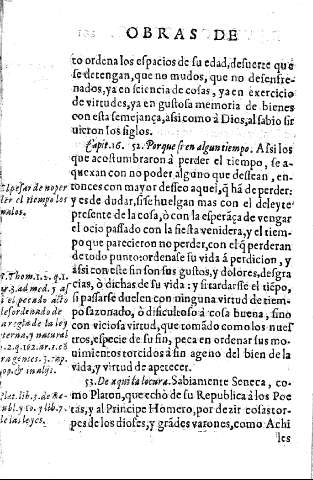 OBRAS DE
to ordena los espacios de su edad, desuerte que
se detengan, que no mudos, que no desenfre-
nados, ya en sciencia de cosas, ya en exercicio
de virtudes, ya en gustosa memoria de bienes
con esta semejança, assi como à Dios, al sabio sir
uieron los siglos.
Capit. 16. 52. Porque si en algun tiempo. Assi los
que acostumbraron à perder el tiempo, se a-
quexan con no poder alguno que dessean, en-
tonces con mayor desseo aquel, q̃ há de perder:
y es de dudar, si se huelgan mas con el deleyte
presente de la cosa, ò con la esperãça de vengar
el ocio passado con la fiesta venidera, y el tiem-
po que parecieron no perder, con el q̃ perderan
de todo punto: ordenase su vida â perdicion, y
ási con este fin son sus gustos, y dolores, desgra-
cias, ò dichas de su vida: y si tardasse el tiẽpo,
si passasse duelen con ninguna virtud de tiem-
po sazonado, ò dificultoso à cosa buena, sino
con viciosa virtud, que tomãdo como los nues
tros, especie de su fin, peca en ordenar sus mo-
uimientos torcidos à fin ageno del bien de la
vida, y virtud de apetecer.
53. De aqui la locura. Sabiamente Seneca, co-
mo Platon, que echò de su Republica à los Poe
tas, y al Principe Homero, por dezir cosas tor-
pes de los dioses, y grãdes varones, como Achi
les
El pesar de no per
der el tiempo los
malos.
S. Thom. 1. 2. q. 1.
ar. 3. ad med. y as
si el pecado acto
desordenado de
la regla de la ley
eterna, y natural
1. 2. q. 162. ar. 1. cõ
tra gentes. 3. cap.
Plat. lib. 3. de Re-
publ. y 10. y lib. 7.
de las leyes.